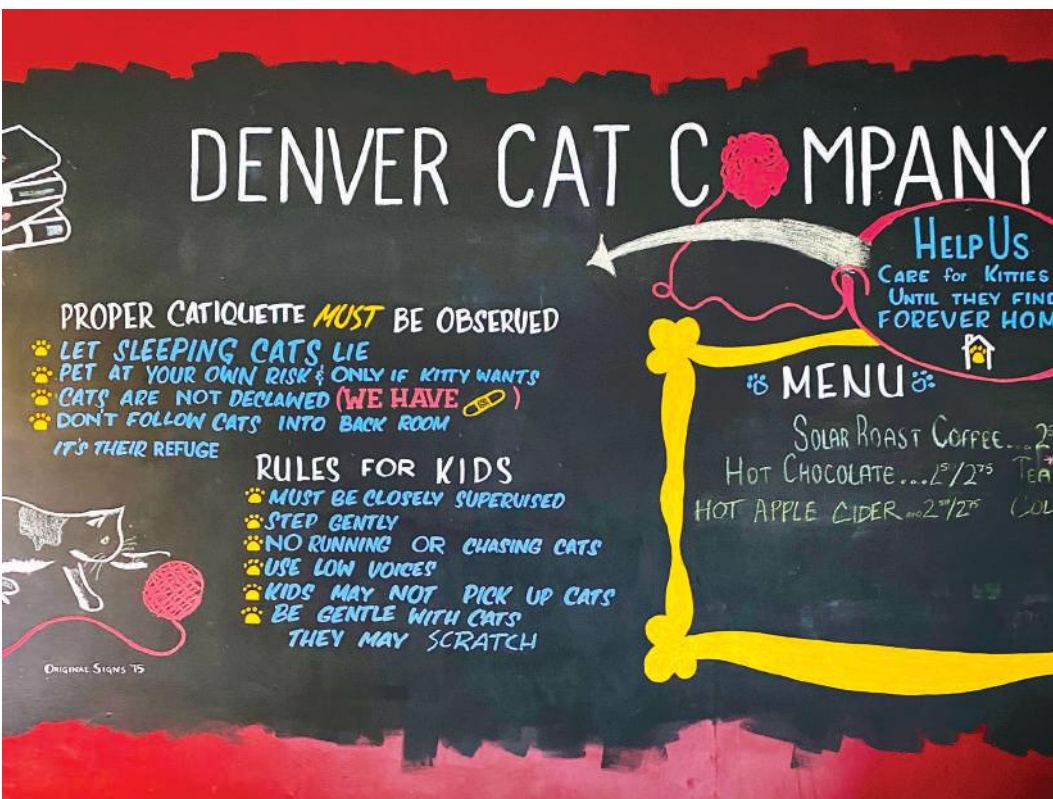 DENVER CAT COMPANY
HELP US
CARE for KITTIES
UNTIL THEY FIND
FOREVER HOM
PROPER CATIQUETTE MUST BE OBSERVED
LET SLEEPING CATS LIE
PET AT YOUR OWN RISK & ONLY IF KITTY WANTS
CATS ARE NOT DECLAWED (WE HAVE )
DON'T FOLLOW CATS INTO BACK ROOM
IT'S THEIR REFUGE
RULES FOR KIDS
MUST BE CLOSELY SUPERVISED
STEP GENTLY
NO RUNNING OR CHASING CATS
USE LOW VOICES
KIDS MAY NOT PICK UP CATS
BE GENTLE WITH CATS
THEY MAY SCRATCH
ORIGINAL SIGNS '15
MENU
SOLAR ROAST COFFEE...
HOT CHOCOLATE... TEA
HOT APPLE CIDER